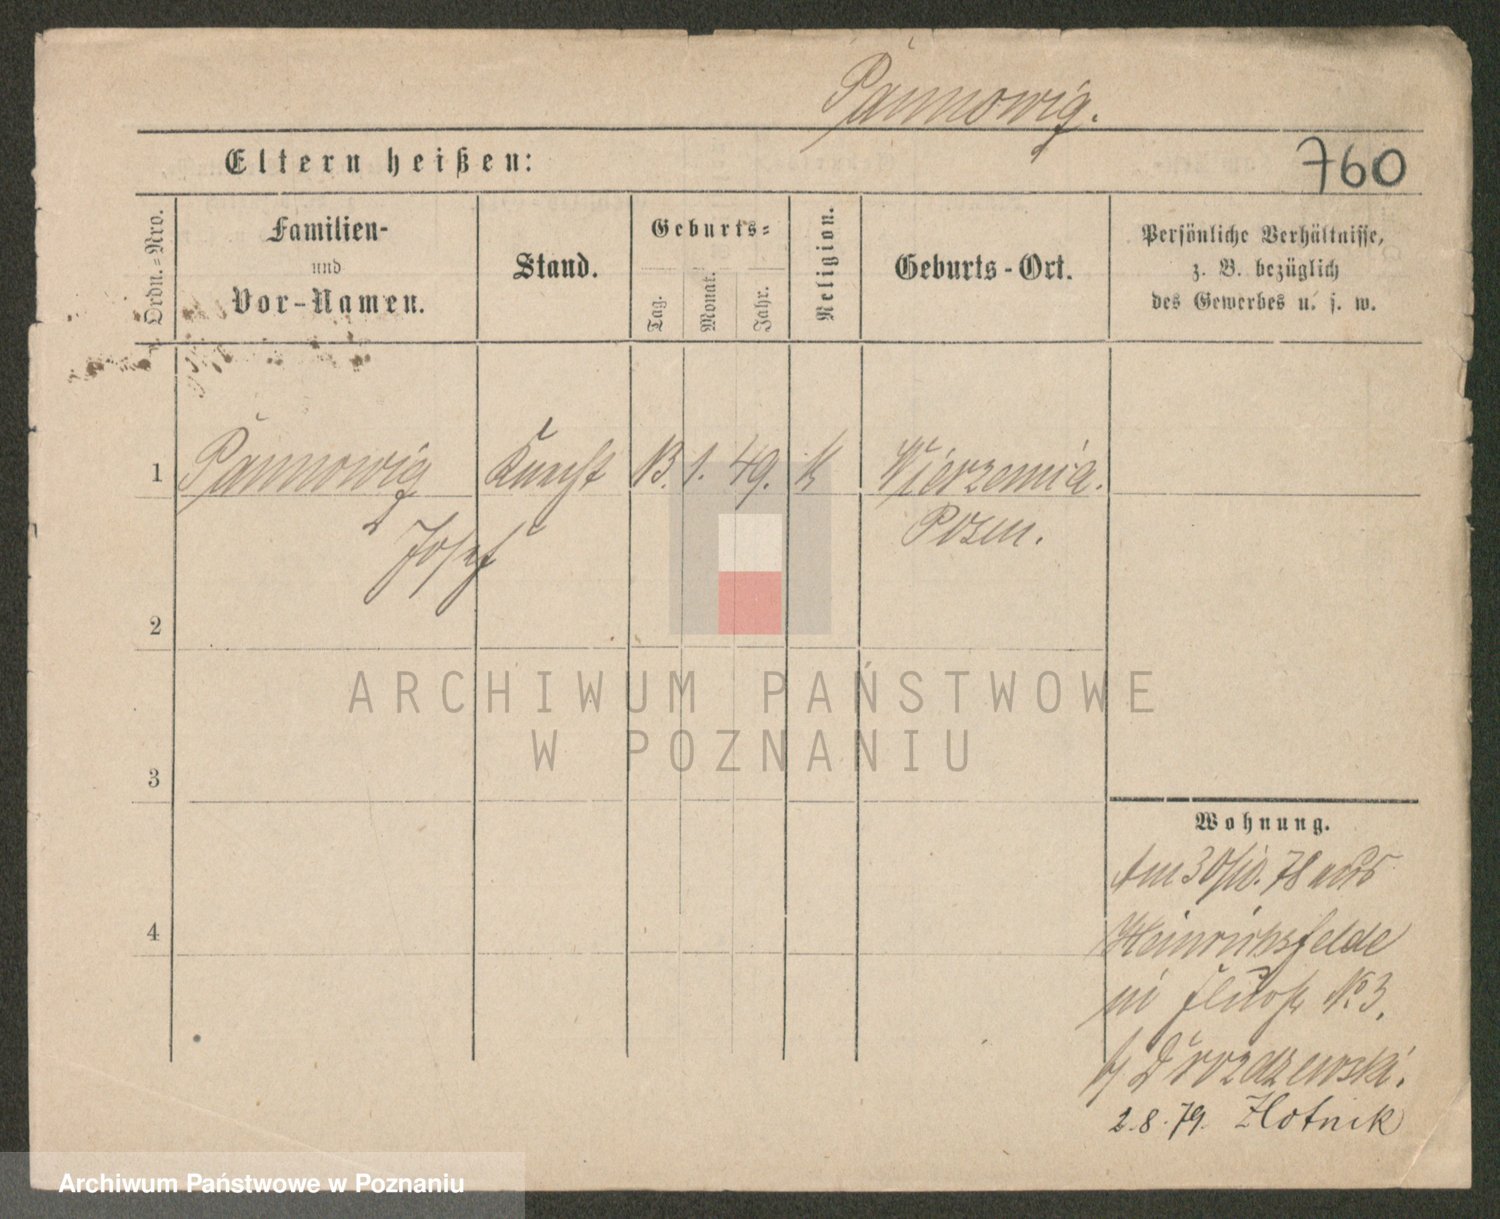 Pannowig.
Eltern heißen:
760
Ordn.=Nro.
Familien-
und
Vor-Namen.
Stand.
Geburts=
Tag.
Monat.
Jahr.
Religion.
Geburts-Ort.
Persönliche Verhältnisse,
z. B. bezüglich
des Gewerbes u. s. w.
1
Pannowig
Knecht
13. 1. 49. k
Wierzenica.
Josef
Posen.
2
3
4
Wohnung.
Am 30/10. 78
Heinrichsfelde
No 3.
Drozdzewski.
2.8.79. Zlotnik
ARCHIWUM PAŃSTWOWE
W POZNANIU
Archiwum Państwowe w Poznaniu